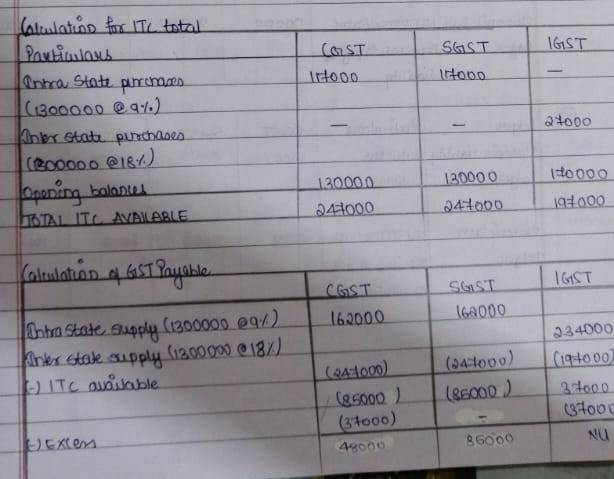 Calculation for ITC total
Particulars CGST SGST IGST
Intra State purchases 117000 117000 —
(1300000 @ 9%)
Inter state purchases — — 27000
(1300000 @ 18%)
Opening balances 130000 130000 170000
TOTAL ITC AVAILABLE 247000 247000 197000
Calculation of GST Payable
CGST SGST IGST
Intra State supply (1300000 @ 9%) 162000 162000
Inter state supply (1300000 @ 18%) 234000
(-) ITC available (247000) (247000) (197000)
(85000) (85000) 37000
(37000) - (37000
(-) Excess 48000 85000 NIL